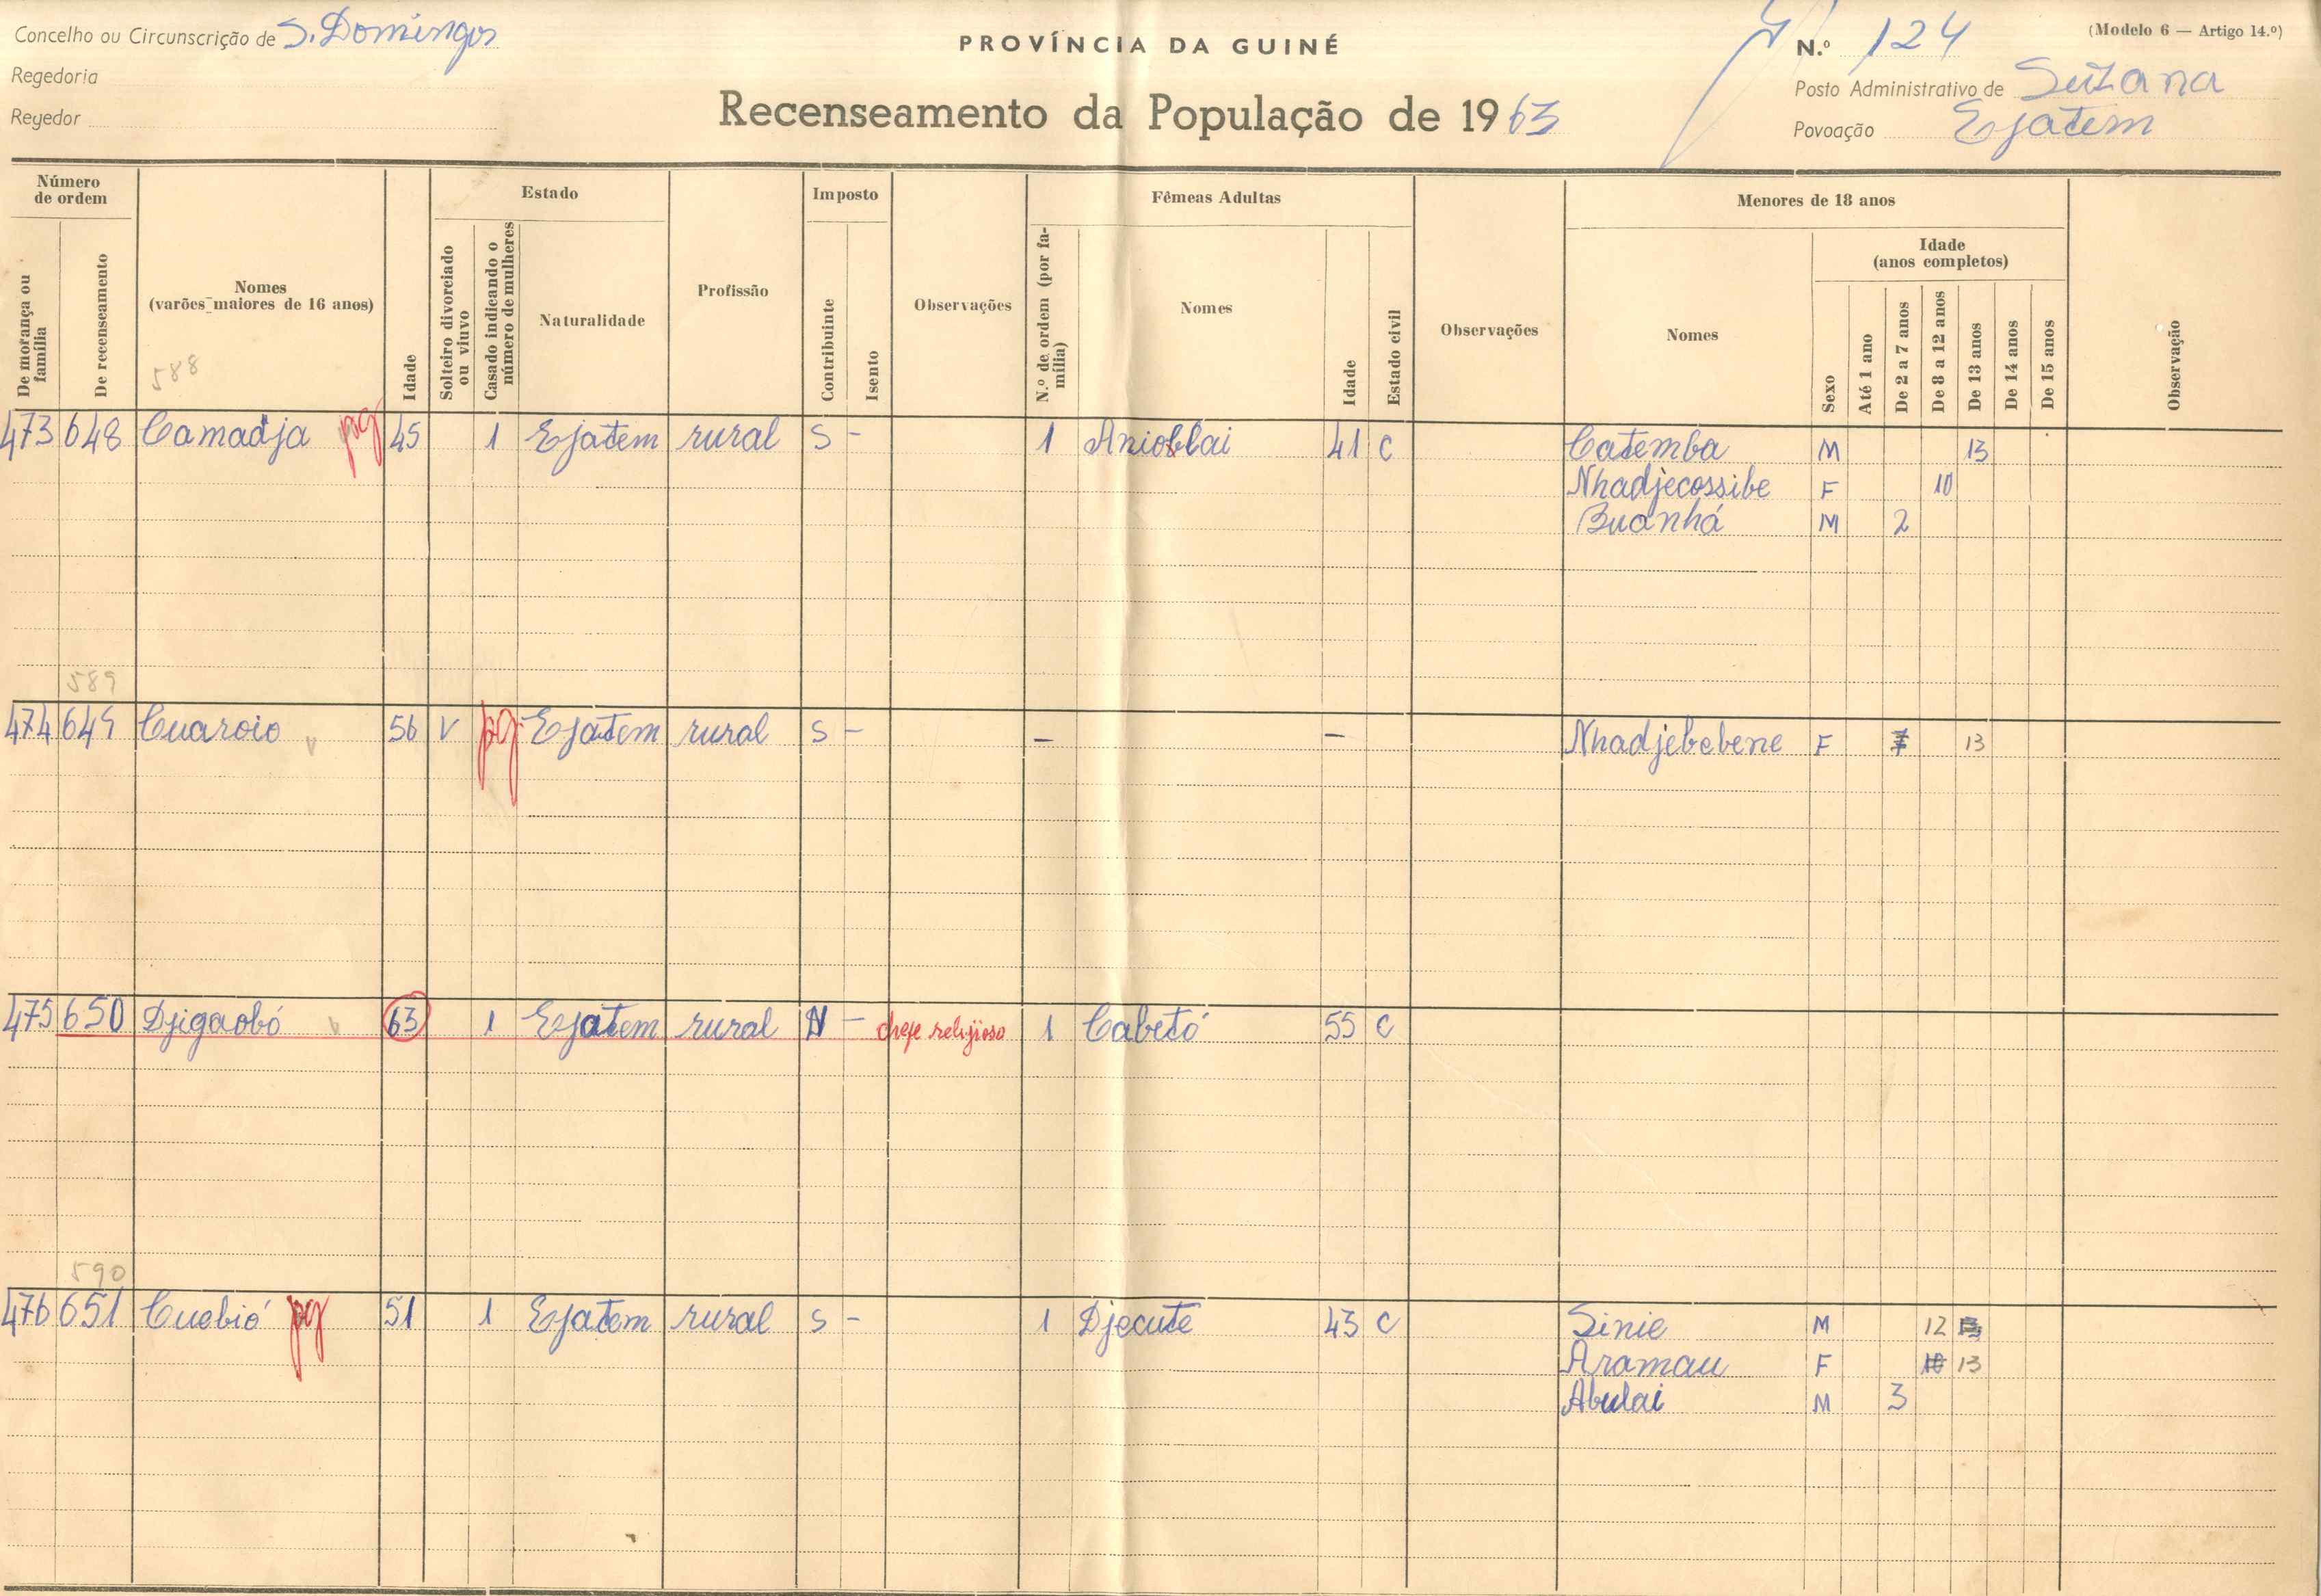 Concelho ou Circunscrição de S. Domingos
PROVÍNCIA DA GUINÉ
N.º 124
(Modelo 6 — Artigo 14.º)
Regedoria
Posto Administrativo de Suzana
Reyedor
Recenseamento da População de 1963
Povoação Ejatem
Número de ordem
Estado
Imposto
Fêmeas Adultas
Menores de 18 anos
De morança ou família
De recenseamento
Nomes (varões maiores de 16 anos)
Idade
Solteiro divorciado ou viuvo
Casado indicando o número de mulheres
Naturalidade
Profissão
Contribuinte
Isento
Observações
N.º de ordem (por família)
Nomes
Idade
Estado civil
Observações
Nomes
Sexo
Idade (anos completos)
Até 1 ano
De 2 a 7 anos
De 8 a 12 anos
De 13 anos
De 14 anos
De 15 anos
Observação
588
473 648 Camadja pg 45 1 Ejatem rural S - 1 Anioblai 41 C Catemba M 13
Nhadjecossibe F 10
Buanhá M 2
589
474 649 Cuaroio v 56 V pg Ejatem rural S - - - Nhadjebebene F 7 13
475 650 Djigaobó v 63 1 Ejatem rural N - chefe religioso 1 Cabetó 55 C
590
476 651 Cuebió pg 51 1 Ejatem rural S - 1 Djecute 43 C Sinie M 12 13
Aramau F 10 13
Abulai M 3